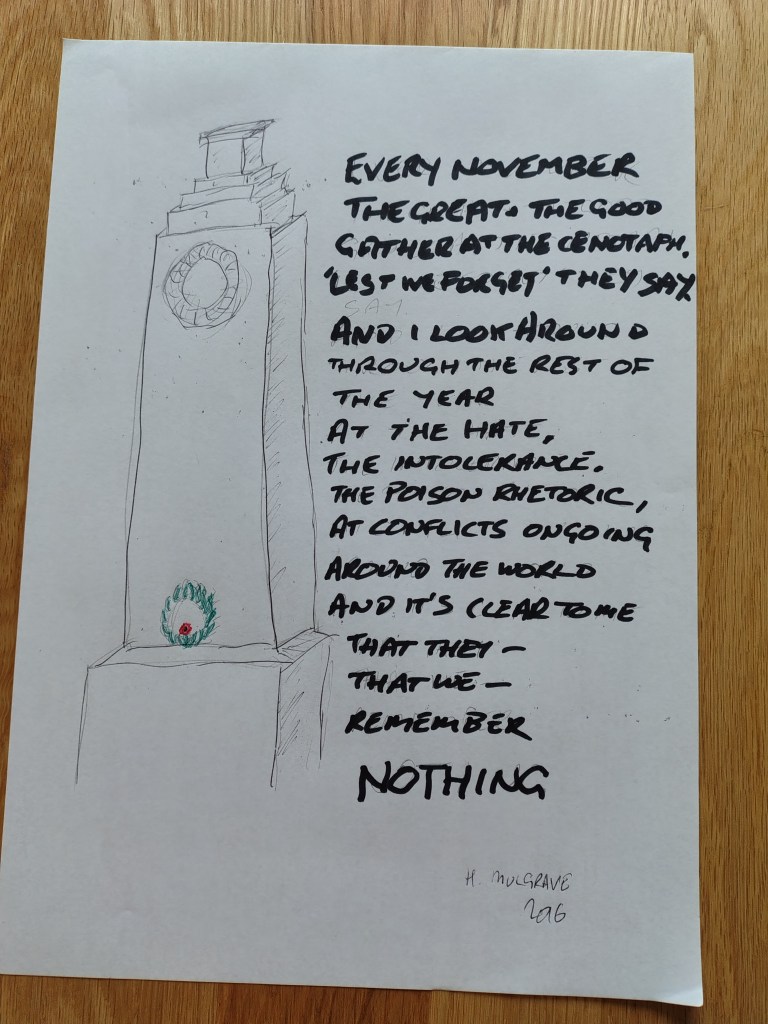 EVERY NOVEMBER
THE GREAT. THE GOOD
GATHER AT THE CENOTAPH.
'LEST WE FORGET' THEY SAY
SAY.
AND I LOOK AROUND
THROUGH THE REST OF
THE YEAR
AT THE HATE,
THE INTOLERANCE.
THE POISON RHETORIC,
AT CONFLICTS ONGOING
AROUND THE WORLD
AND IT'S CLEAR TO ME
THAT THEY –
THAT WE –
REMEMBER
NOTHING
H. MULGRAVE
2016